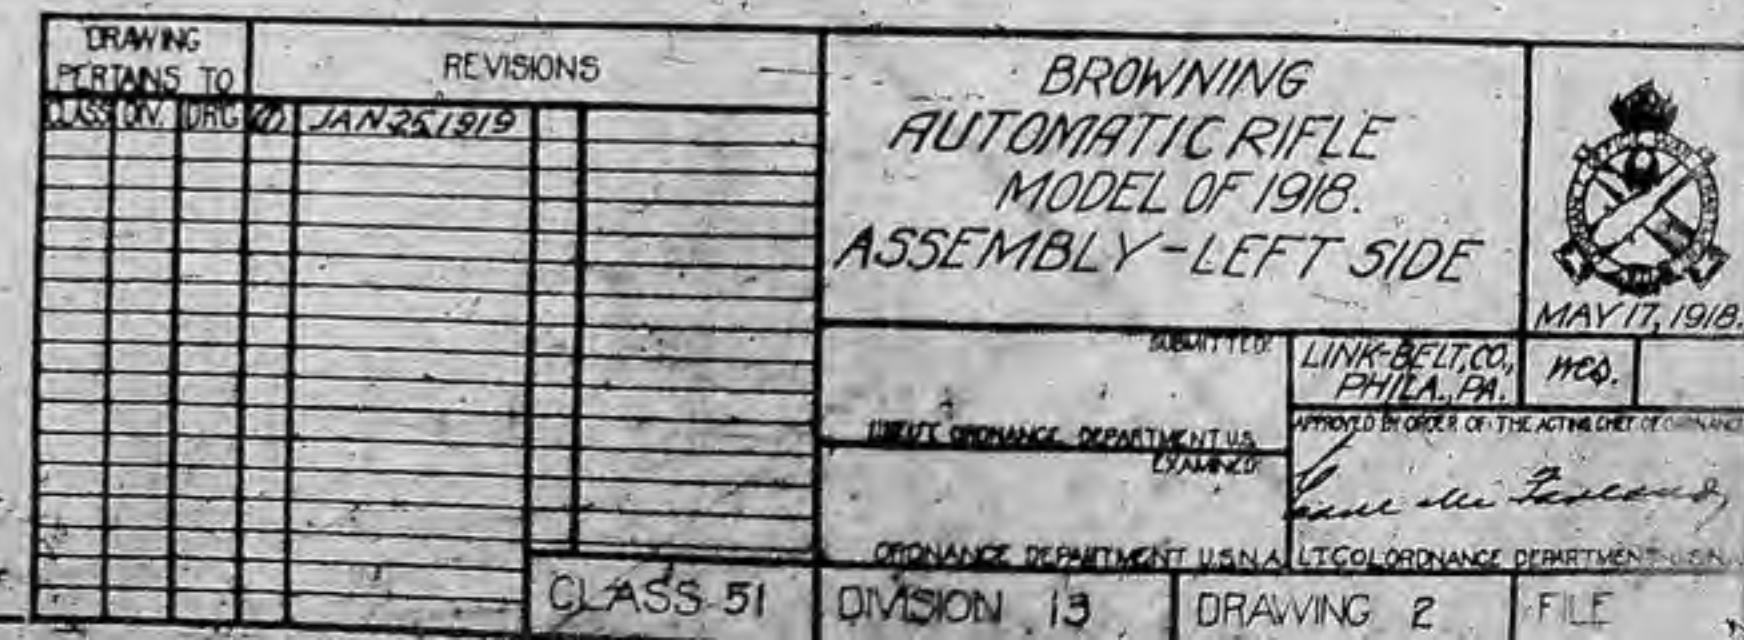 DRAWING
PERTAINS TO
REVISIONS
CLASS DIV. DR'G
JAN 25 1919
BROWNING
AUTOMATIC RIFLE
MODEL OF 1918.
ASSEMBLY-LEFT SIDE
MAY 17, 1918.
SUBMITTED:
LIEUT ORDNANCE DEPARTMENT U.S.
LINK-BELT, CO.,
PHILA., PA.
EXAMINED:
ORDNANCE DEPARTMENT U.S.N.A.
APPROVED BY ORDER OF THE ACTING CHIEF OF ORDNANCE
LT COL ORDNANCE DEPARTMENT U.S.N.
CLASS 51
DIVISION 13
DRAWING 2
FILE